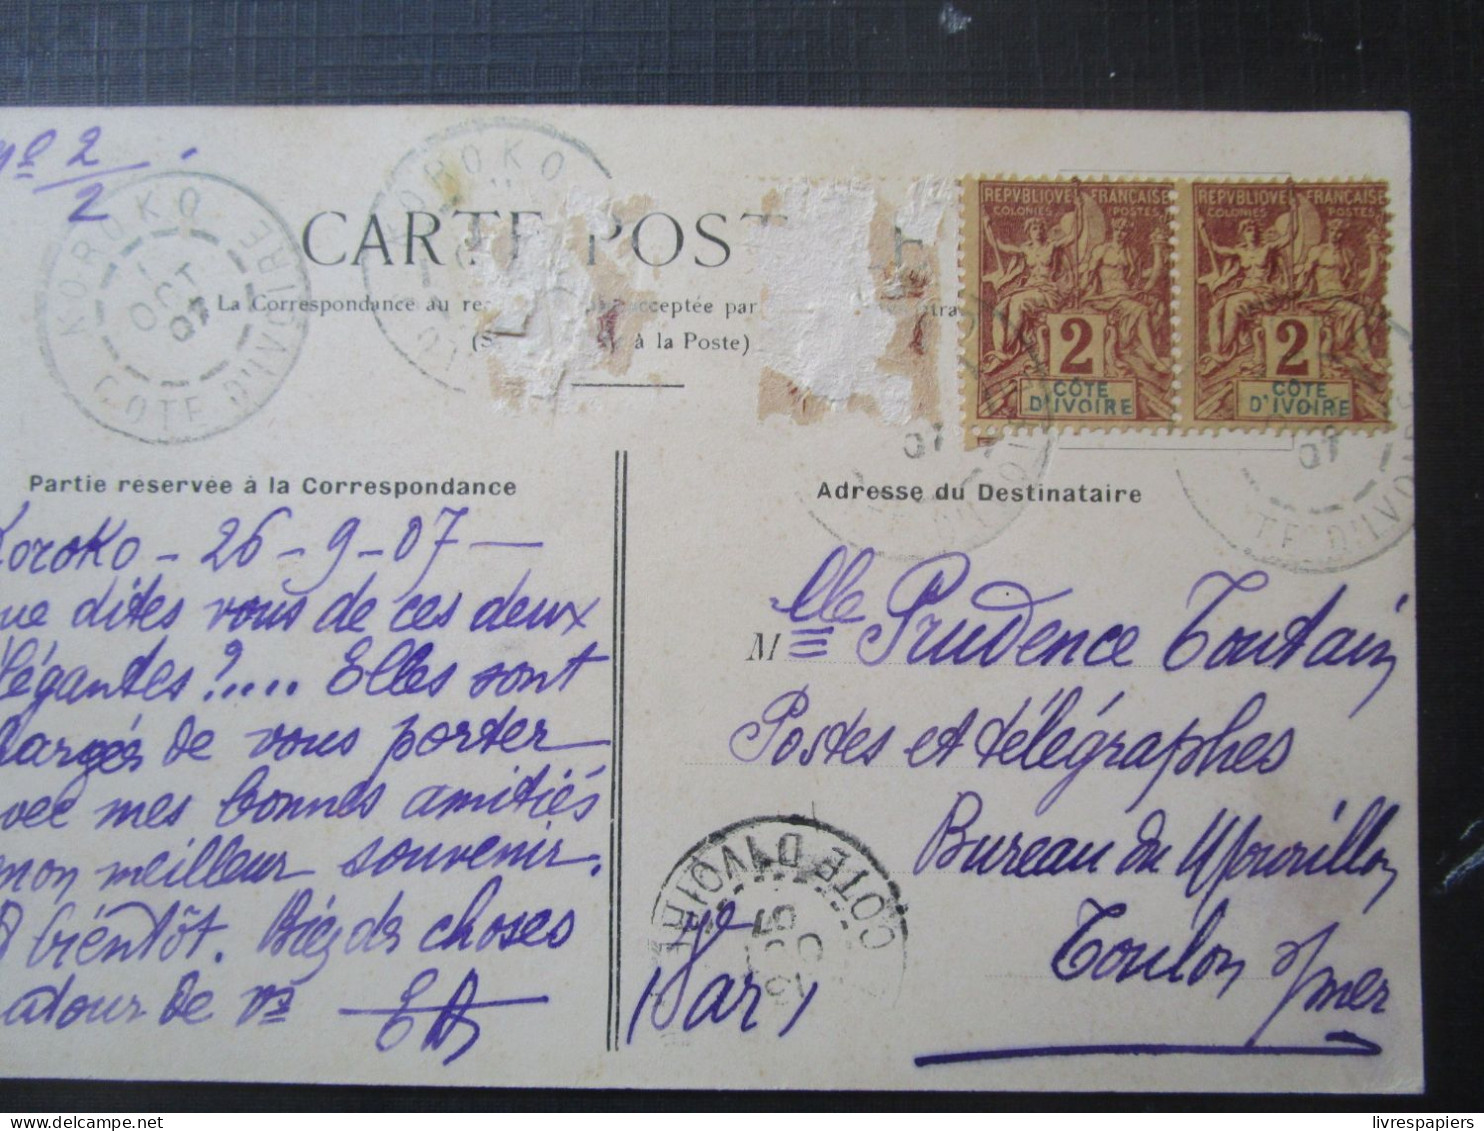 No 2/2
KOROKO
1 OCT 07
COTE D'IVOIRE
KOROKO
CARTE POST
La Correspondance au rec acceptée par
à la Poste)
REPVBLIQVE FRANÇAISE
COLONIES POSTES
2
CÔTE
D'IVOIRE
REPVBLIQVE FRANÇAISE
COLONIES POSTES
2
CÔTE
D'IVOIRE
07
07
Partie réservée à la Correspondance
Koroko - 26 - 9 - 07 -
que dites vous de ces deux
élégantes ?.... Elles sont
chargés de vous porter
avec mes bonnes amitiés
mon meilleur souvenir.
A bientôt. Bien des choses
autour de vs
Adresse du Destinataire
Mlle Prudence Toutain
Postes et télégraphes
Bureau du Mourillon
Toulon s/mer
(Var)
COTE D'IVOIRE
07
livrespapiers